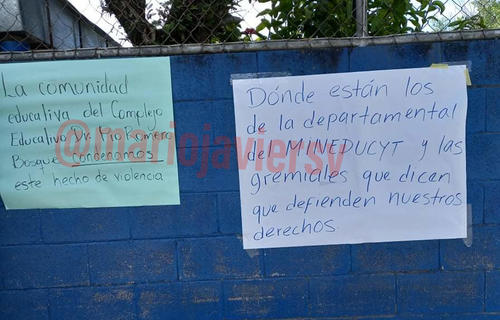 La comunidad
educativa del Complejo
Educativo Dr. Pío Romero
Bosque condenamos
este hecho de violencia
Dónde están los
de la departamental
del MINEDUCYT y las
gremiales que dicen
que defienden nuestros
derechos.
@mariojaviersv